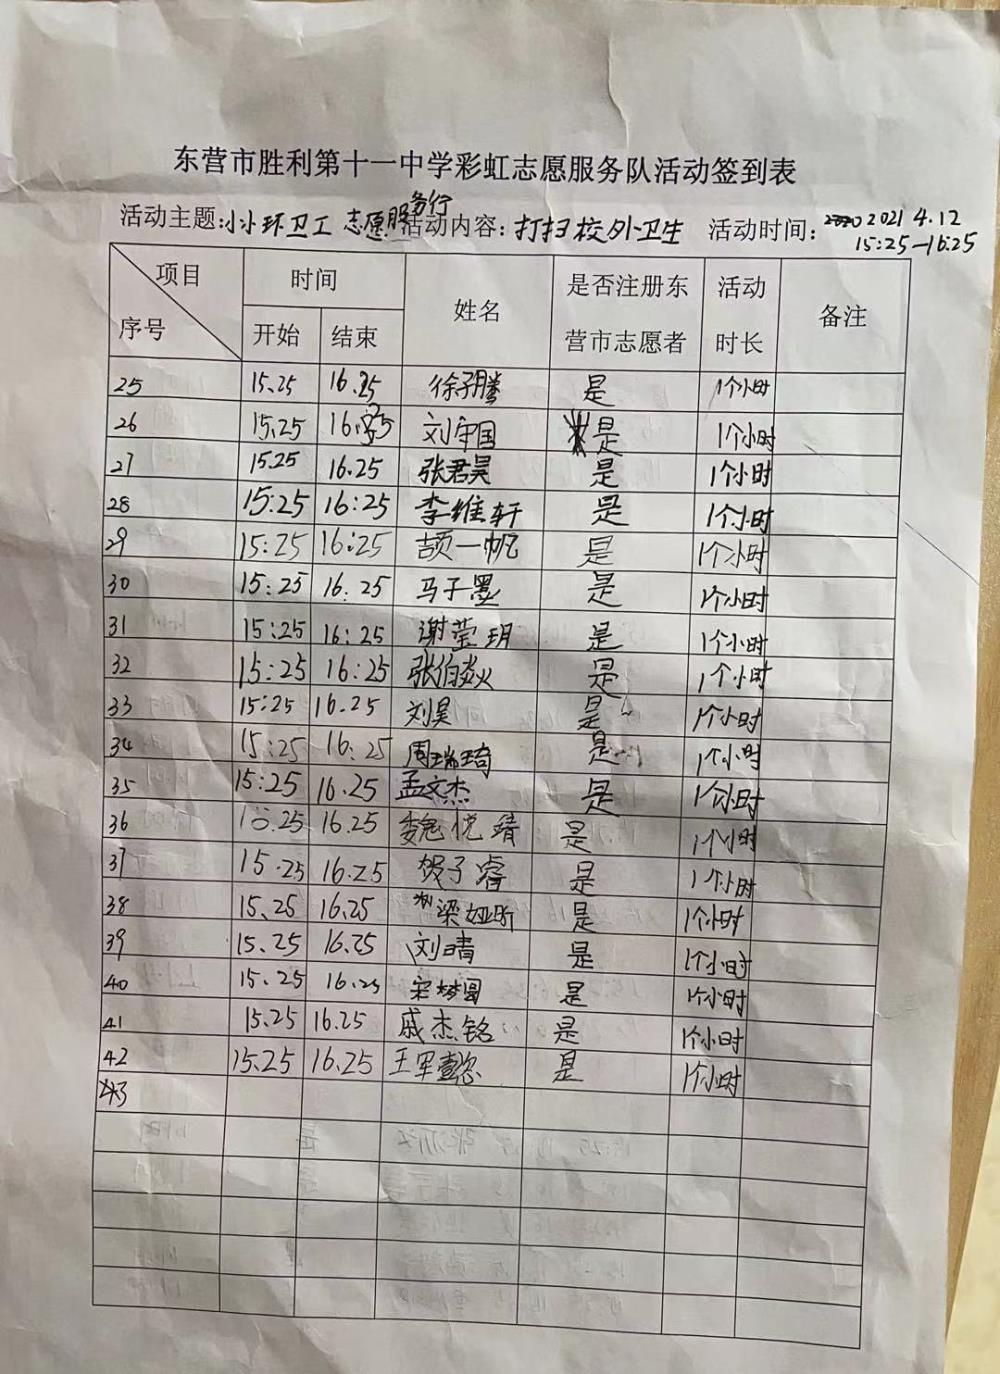 东营市胜利第十一中学彩虹志愿服务队活动签到表
活动主题:小小环卫工 志愿服务行 活动内容:打扫校外卫生 活动时间:2021 4.12
15:25-16:25
项目 时间 姓名 是否注册东营市志愿者 活动时长 备注
序号 开始 结束
25 15.25 16.25 徐子腾 是 1个小时
26 15.25 16.25 刘宇国 是 1个小时
27 15.25 16.25 张君昊 是 1个小时
28 15:25 16:25 李维轩 是 1个小时
29 15:25 16:25 颉一帆 是 1个小时
30 15:25 16:25 马子墨 是 1个小时
31 15:25 16:25 谢莹玥 是 1个小时
32 15:25 16:25 张伯焱 是 1个小时
33 15:25 16.25 刘昊 是 1个小时
34 15:25 16:25 周瑞琦 是 1个小时
35 15:25 16.25 孟文杰 是 1个小时
36 15.25 16.25 魏悦靖 是 1个小时
37 15.25 16.25 贺子睿 是 1个小时
38 15.25 16.25 梁娅昕 是 1个小时
39 15.25 16.25 刘晴 是 1个小时
40 15.25 16.25 宋梦圆 是 1个小时
41 15.25 16.25 戚杰铭 是 1个小时
42 15.25 16.25 王军懿 是 1个小时
43